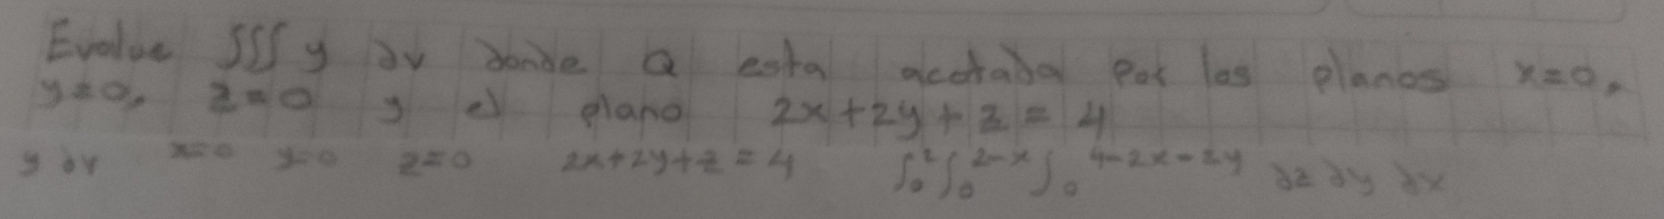 Evalue ∫∫∫ y dv donde Q esta acotada por los planos x=0,
y=0, z=0 y el plano 2x+2y+z=4
y dv x=0 y=0 z=0 2x+2y+z=4 ∫₀² ∫₀^{2-x} ∫₀^{4-2x-2y} dz dy dx